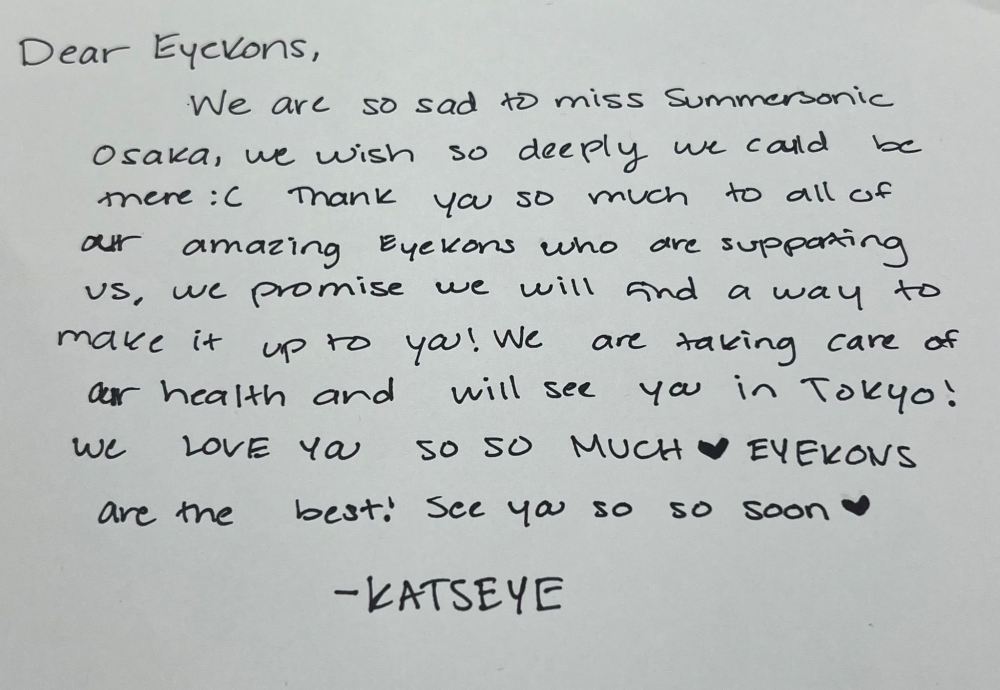 Dear Eyekons,
We are so sad to miss Summersonic
Osaka, we wish so deeply we could be
there :( Thank you so much to all of
our amazing Eyekons who are supporting
us, we promise we will find a way to
make it up to you! We are taking care of
our health and will see you in Tokyo!
We LOVE YOU SO SO MUCH ♥ EYEKONS
are the best! See you so so soon ♥
-KATSEYE